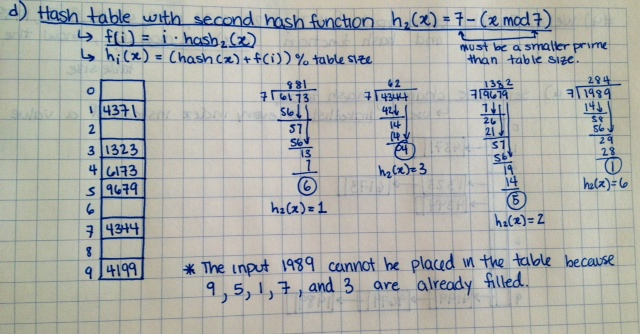 d) Hash table with second hash function h₂(x) = 7 - (x mod 7)
↳ f(i) = i · hash₂(x)
↳ hᵢ(x) = (hash(x) + f(i)) % table size
must be a smaller prime
than table size.
0
1 4371
2
3 1323
4 6173
5 9679
6
7 4344
8
9 4199
881
7 6173
56
57
56
13
7
6
h₂(x) = 1
62
7 4344
42
14
14
04
h₂(x) = 3
1382
7 9679
7
26
21
57
56
19
14
5
h₂(x) = 2
284
7 1989
14
58
56
29
28
1
h₂(x) = 6
* The input 1989 cannot be placed in the table because
9, 5, 1, 7, and 3 are already filled.